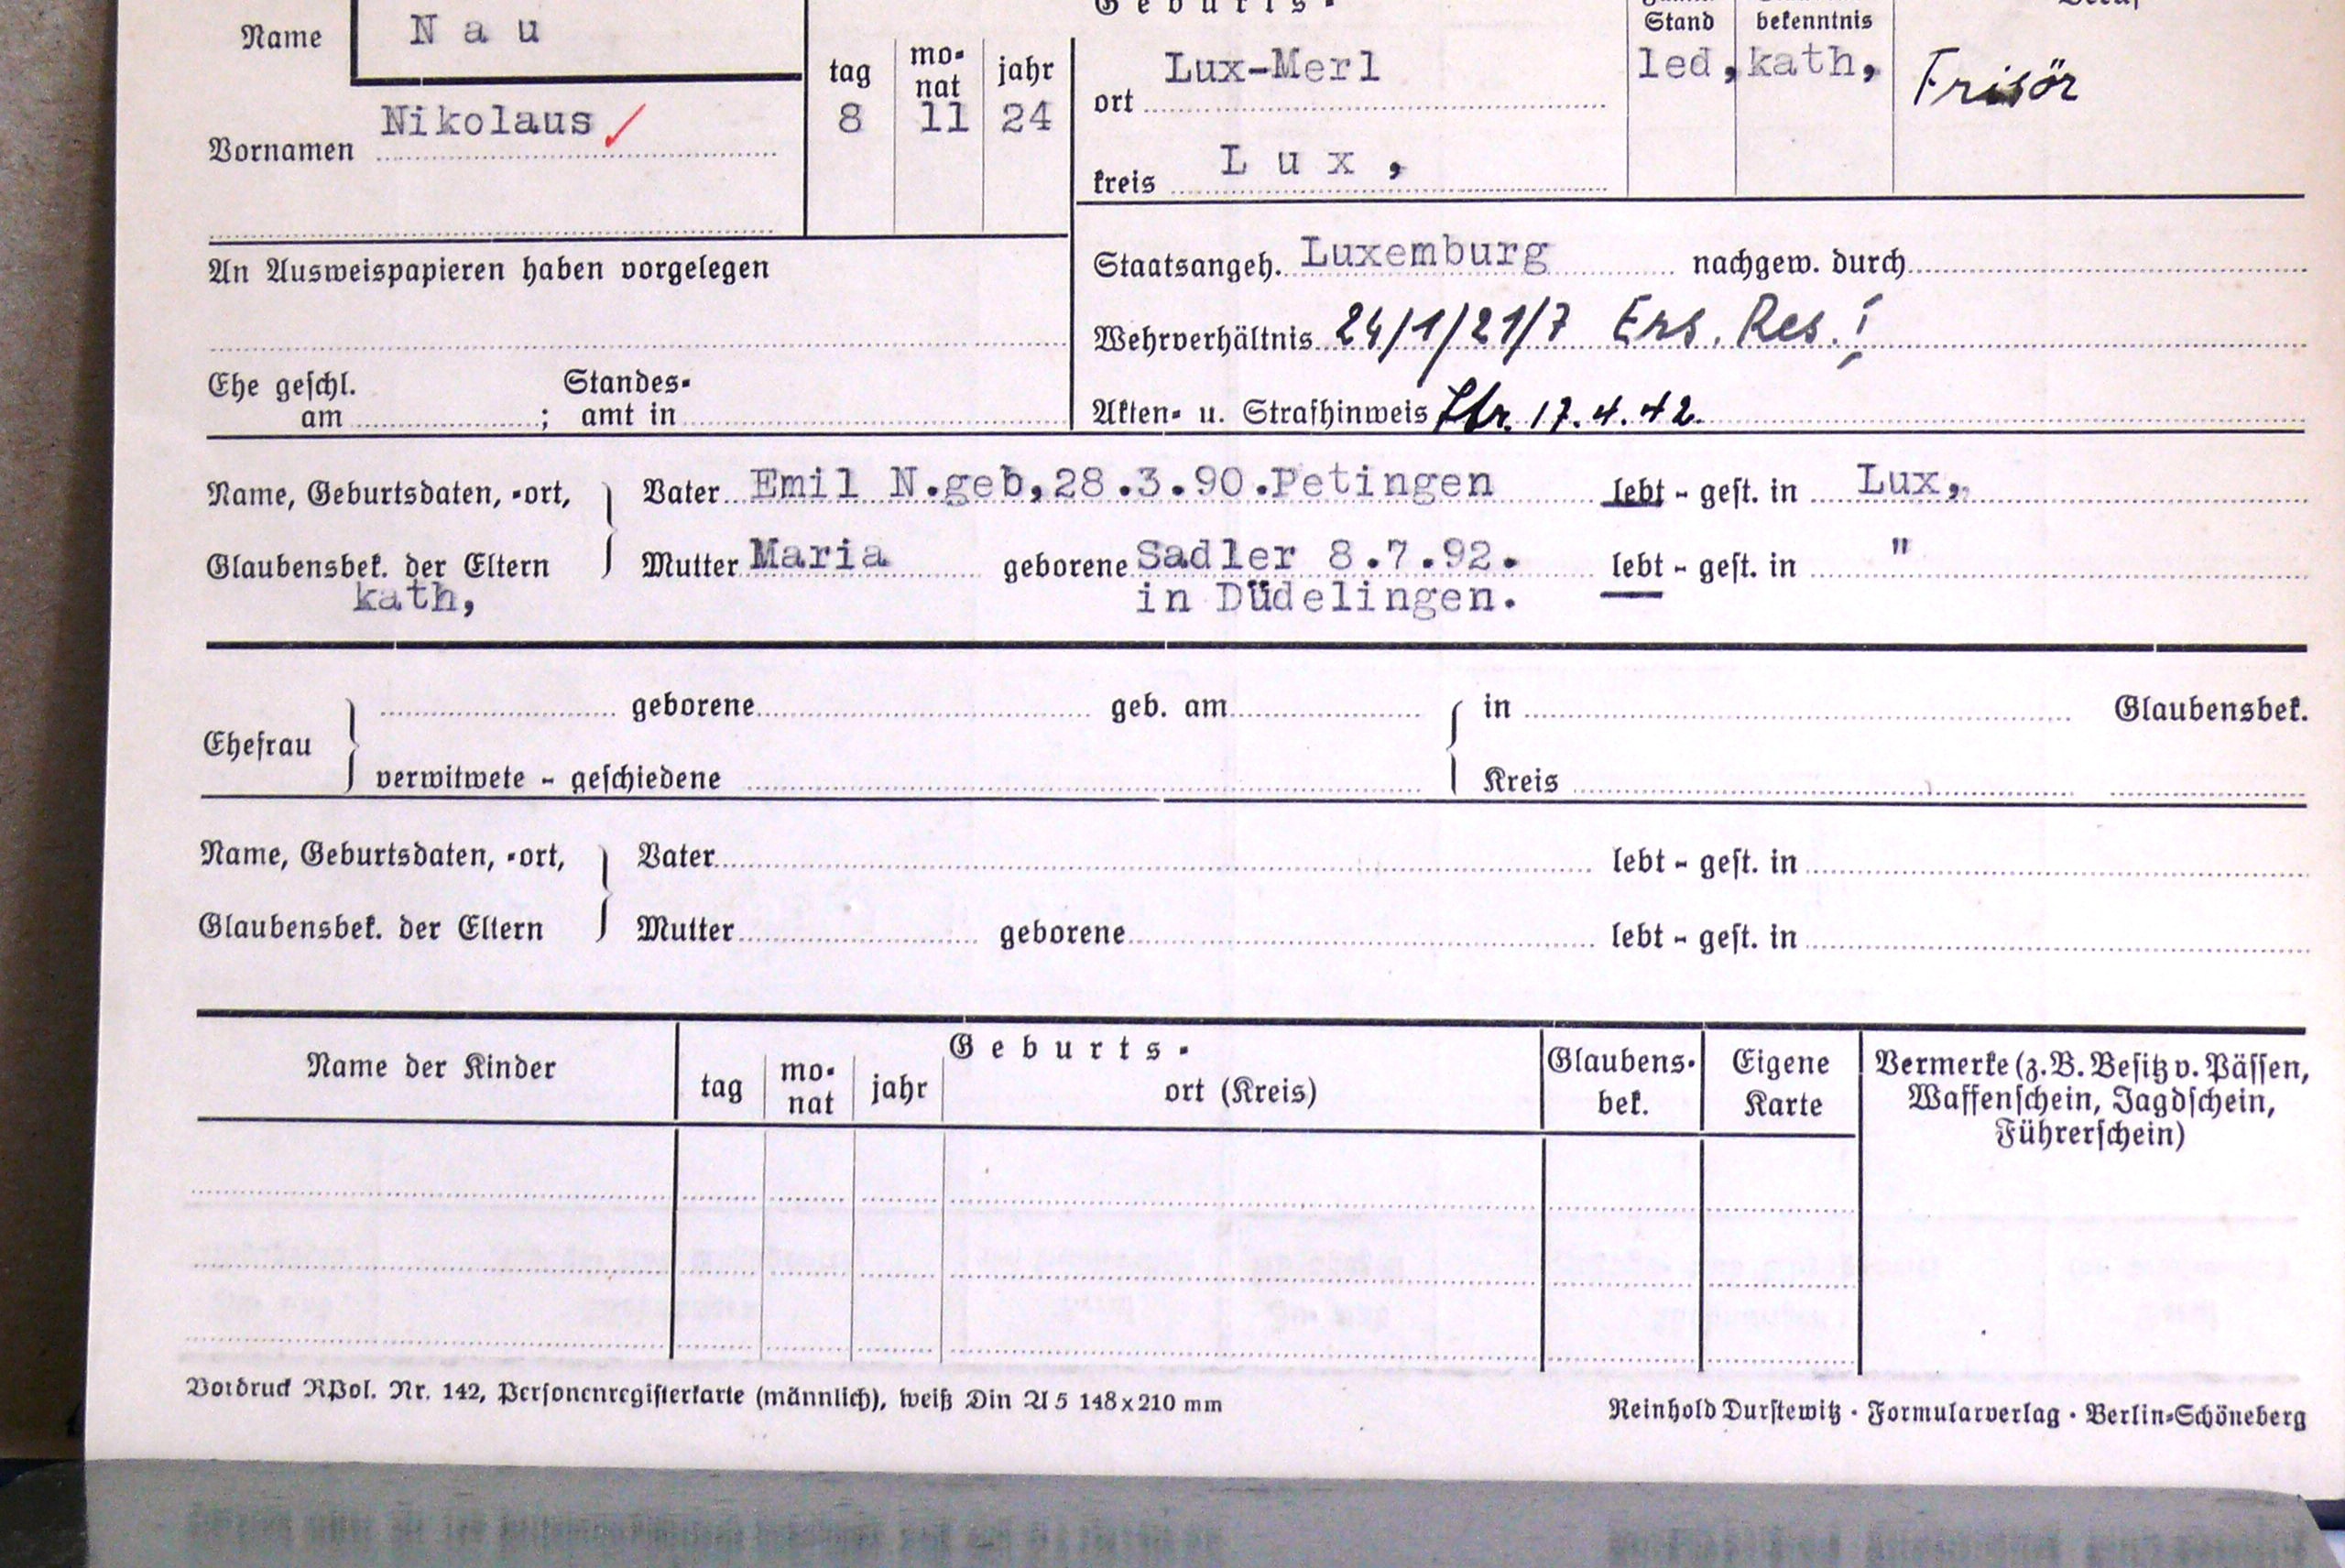 Geburts-
Stand bekenntnis Beruf
Name Nau
tag monat jahr
ort Lux-Merl
led, kath, Frisör
Vornamen Nikolaus
8 11 24
kreis Lux,
An Ausweispapieren haben vorgelegen
Staatsangeh. Luxemburg nachgew. durch
Wehrverhältnis 24/1/21/7 Ers. Res. I
Ehe geschl. am ; Standesamt in
Akten- u. Strafhinweis 17.4.42.
Name, Geburtsdaten, -ort, Vater Emil N.geb,28.3.90.Petingen lebt - gest. in Lux,
Glaubensbek. der Eltern Mutter Maria geborene Sadler 8.7.92. lebt - gest. in "
kath, in Düdelingen.
geborene geb. am in Glaubensbek.
Ehefrau
verwitwete - geschiedene Kreis
Name, Geburtsdaten, -ort, Vater lebt - gest. in
Glaubensbek. der Eltern Mutter geborene lebt - gest. in
Geburts-
Name der Kinder tag monat jahr ort (Kreis) Glaubensbek. Eigene Karte Vermerke (z.B. Besitz v. Pässen,
Waffenschein, Jagdschein,
Führerschein)
Vordruck RPol. Nr. 142, Personenregisterkarte (männlich), weiß Din A 5 148x210 mm
Reinhold Durstewitz · Formularverlag · Berlin-Schöneberg